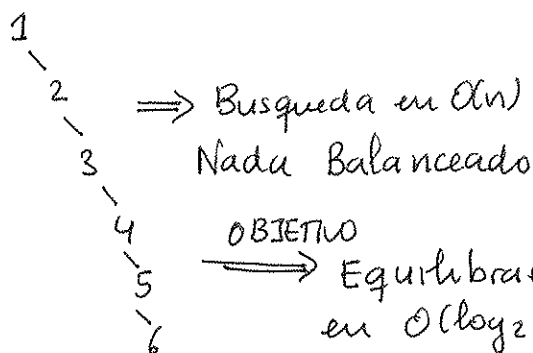 1
2
⇒ Busqueda en O(n)
3
Nada Balanceado
4
OBJETIVO
5
⇒ Equilibrar
en O(log₂
6